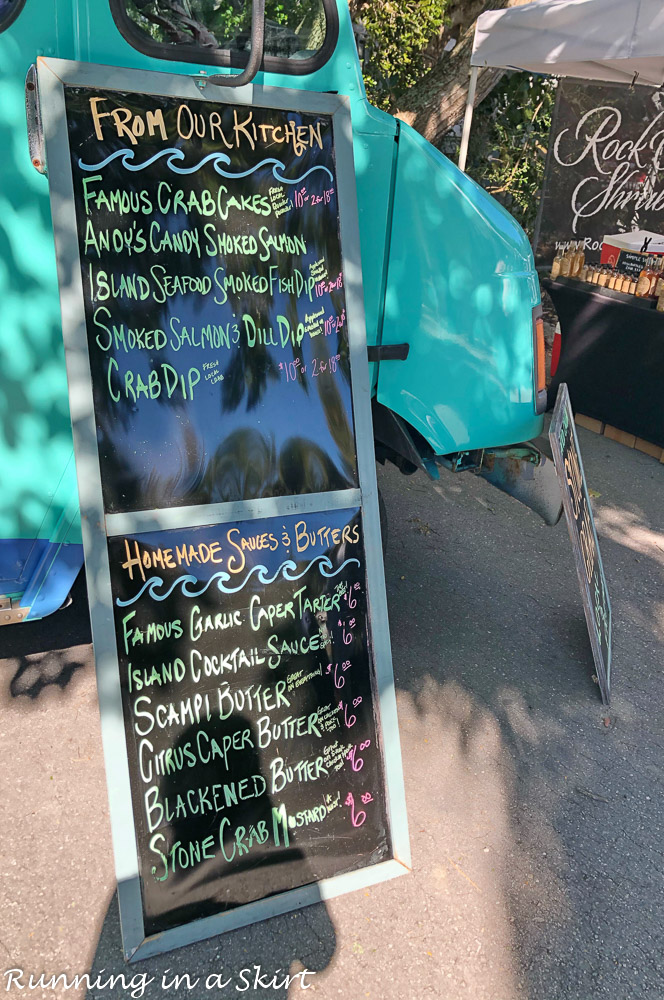 From Our Kitchen
Famous Crab Cakes Fresh Local 10.00 or 2 for 18.00
Andy's Candy Smoked Salmon
Island Seafood Smoked Fish Dip 10.00 2 for 18.00
Smoked Salmon & Dill Dip 10.00 or 2 for 18.00
Crab Dip Fresh Local Crab $10.00 or 2 for 18.00
Homemade Sauces & Butters
Famous Garlic Caper Tarter $6.00
Island Cocktail Sauce $6.00
Scampi Butter Great on everything! $6.00
Citrus Caper Butter Great on $6.00
Blackened Butter Great on $6.00
Stone Crab Mustard $6.00
Rock
Shru
www.Ro
Simple S
Running in a Skirt